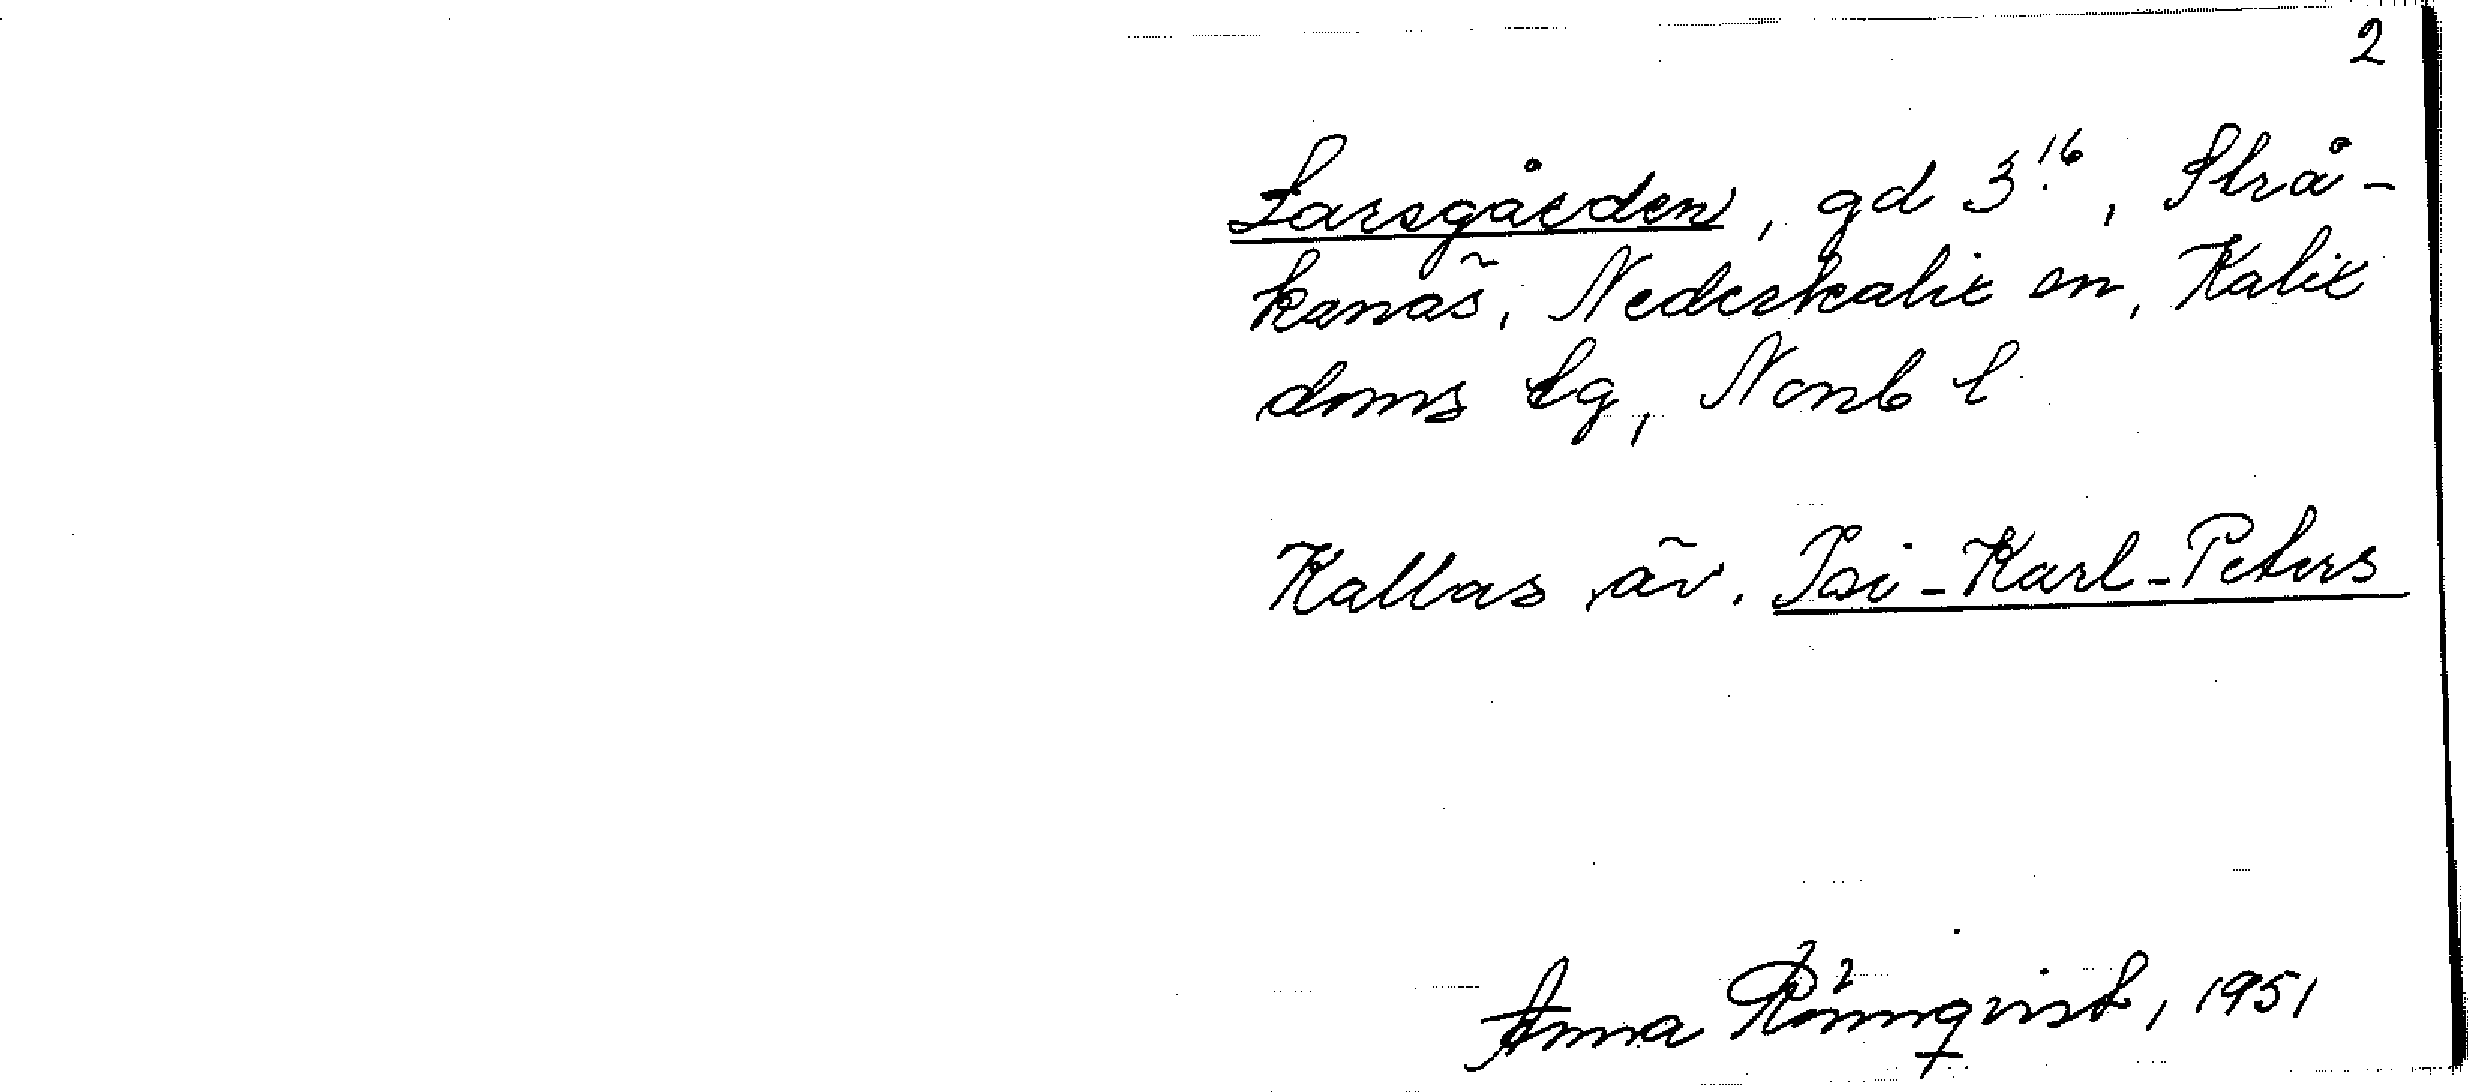 2
Larsgården, gd 3¹⁶, Strå-
kanäs, Nederkalix sn, Kalix
doms lg, Norrb l
Kallas äv. Pai-Karl-Peters
Anna Rönnqvist, 1951